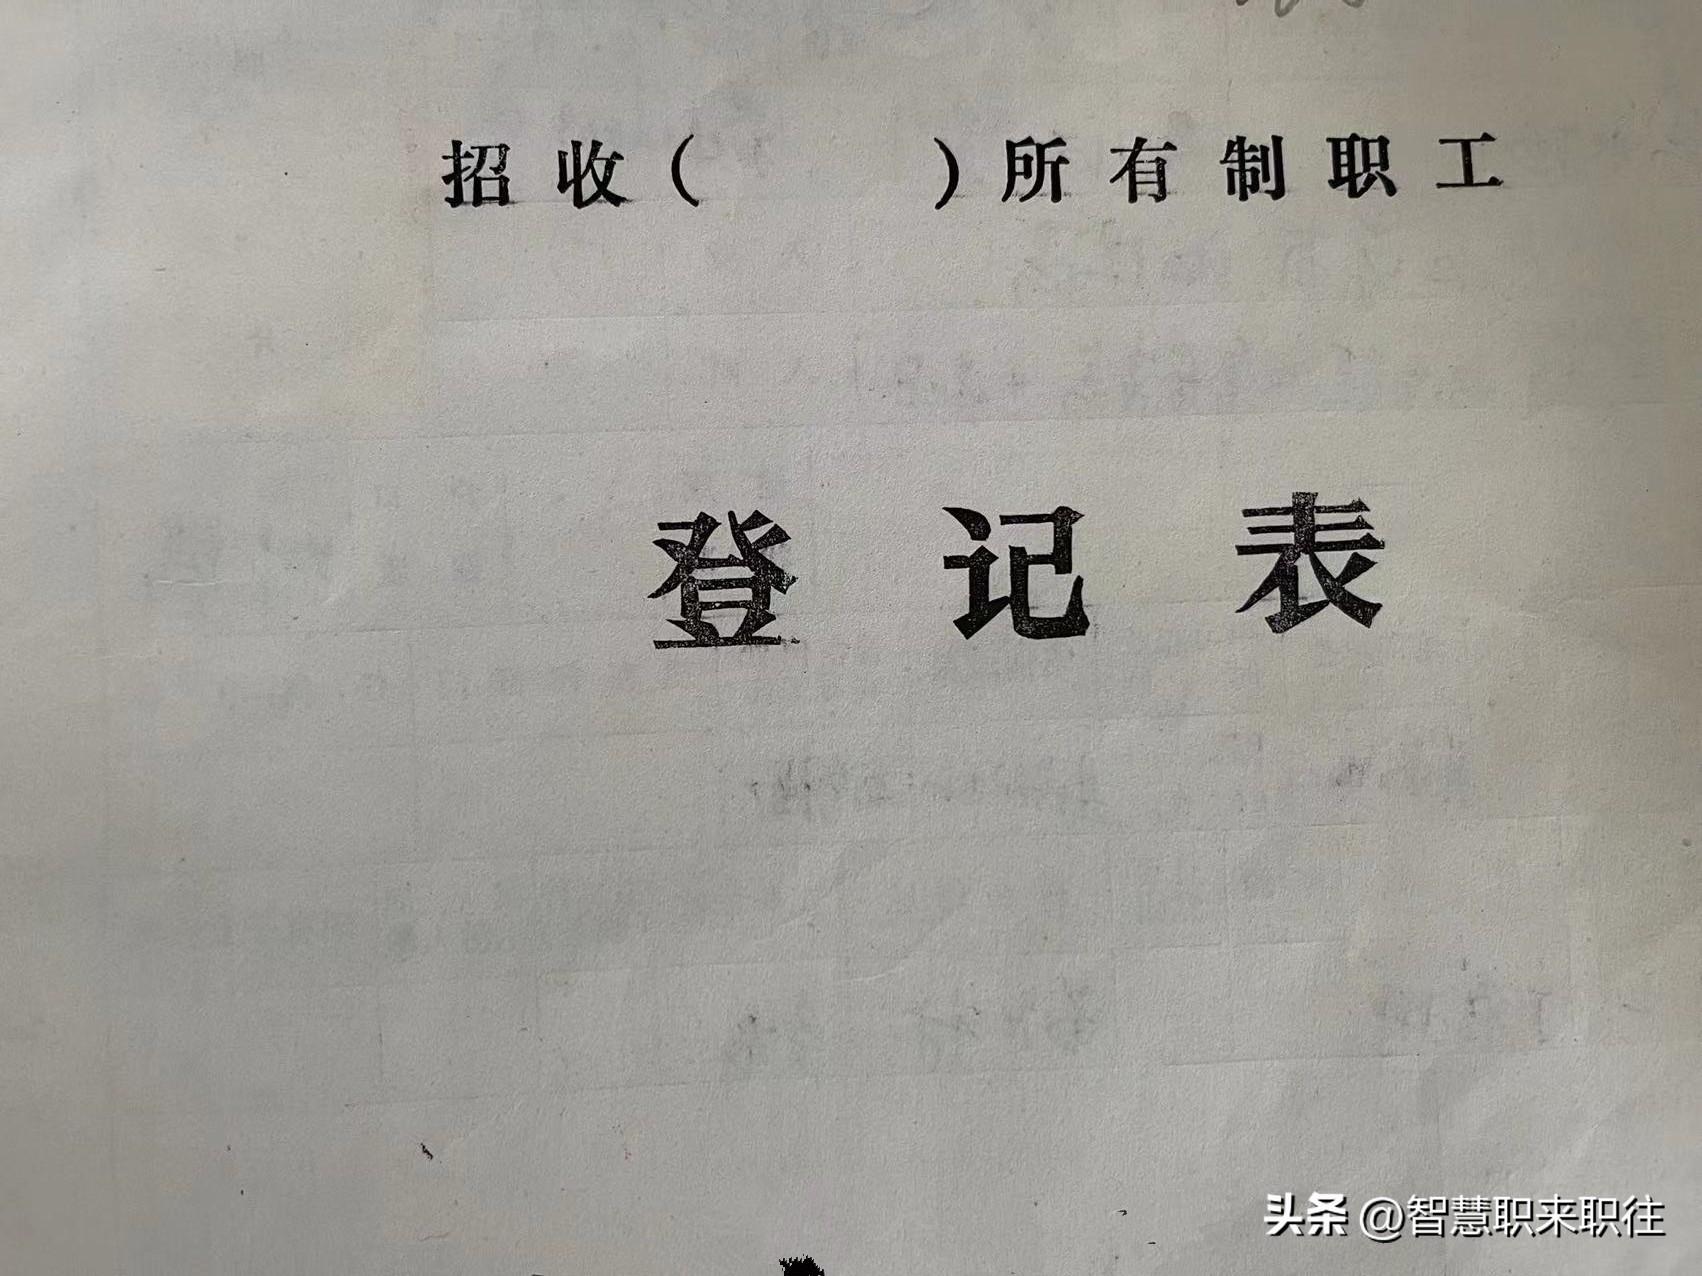 招收（ ）所有制职工
登记表
头条 @智慧职来职往